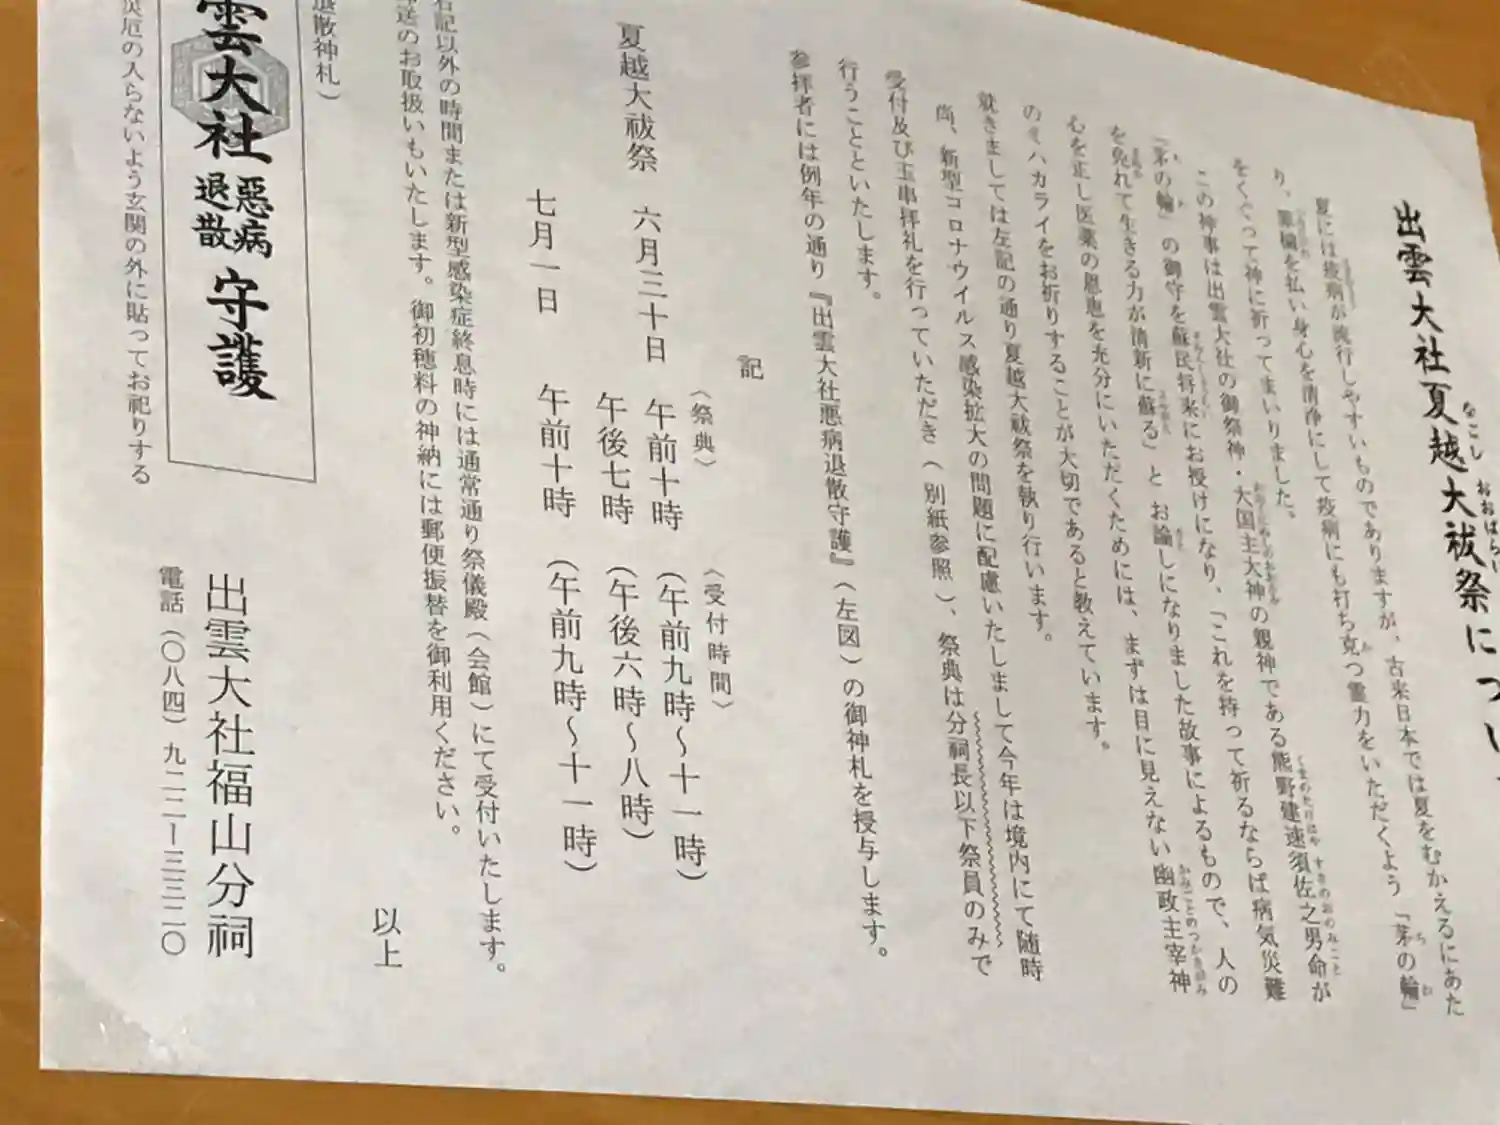 出雲大社夏越大祓祭につい
夏には疫病が流行しやすいものでありますが、古来日本では夏をむかえるにあた
り、罪穢を払い身心を清浄にして疫病にも打ち克つ霊力をいただくよう「茅の輪」
をくぐって神に祈ってまいりました。
この神事は出雲大社の御祭神・大国主大神の親神である熊野建速須佐之男命が
「茅の輪」の御守を蘇民将来にお授けになり、「これを持って祈るならば病気災難
を免れて生きる力が清新に蘇る」と お諭しになりました故事によるもので、人の
心を正し医薬の恩恵を充分にいただくためには、まずは目に見えない幽政主宰神
のミハカライをお祈りすることが大切であると教えています。
就きましては左記の通り夏越大祓祭を執り行います。
尚、新型コロナウイルス感染拡大の問題に配慮いたしまして今年は境内にて随時
受付及び玉串拝礼を行っていただき(別紙参照)、祭典は分祠長以下祭員のみで
行うことといたします。
参拝者には例年の通り『出雲大社悪病退散守護』(左図)の御神札を授与します。
記
〈祭典〉 〈受付時間〉
夏越大祓祭 六月三十日 午前十時 (午前九時〜十一時)
午後七時 (午後六時〜八時)
七月一日 午前十時 (午前九時〜十一時)
右記以外の時間または新型感染症終息時には通常通り祭儀殿(会館)にて受付いたします。
送のお取扱いもいたします。御初穂料の神納には郵便振替を御利用ください。
以上
退散神札)
雲大社 惡病退散 守護
災厄の入らないよう玄関の外に貼ってお祀りする
出雲大社福山分祠
電話(〇八四)九二二ー三三二〇